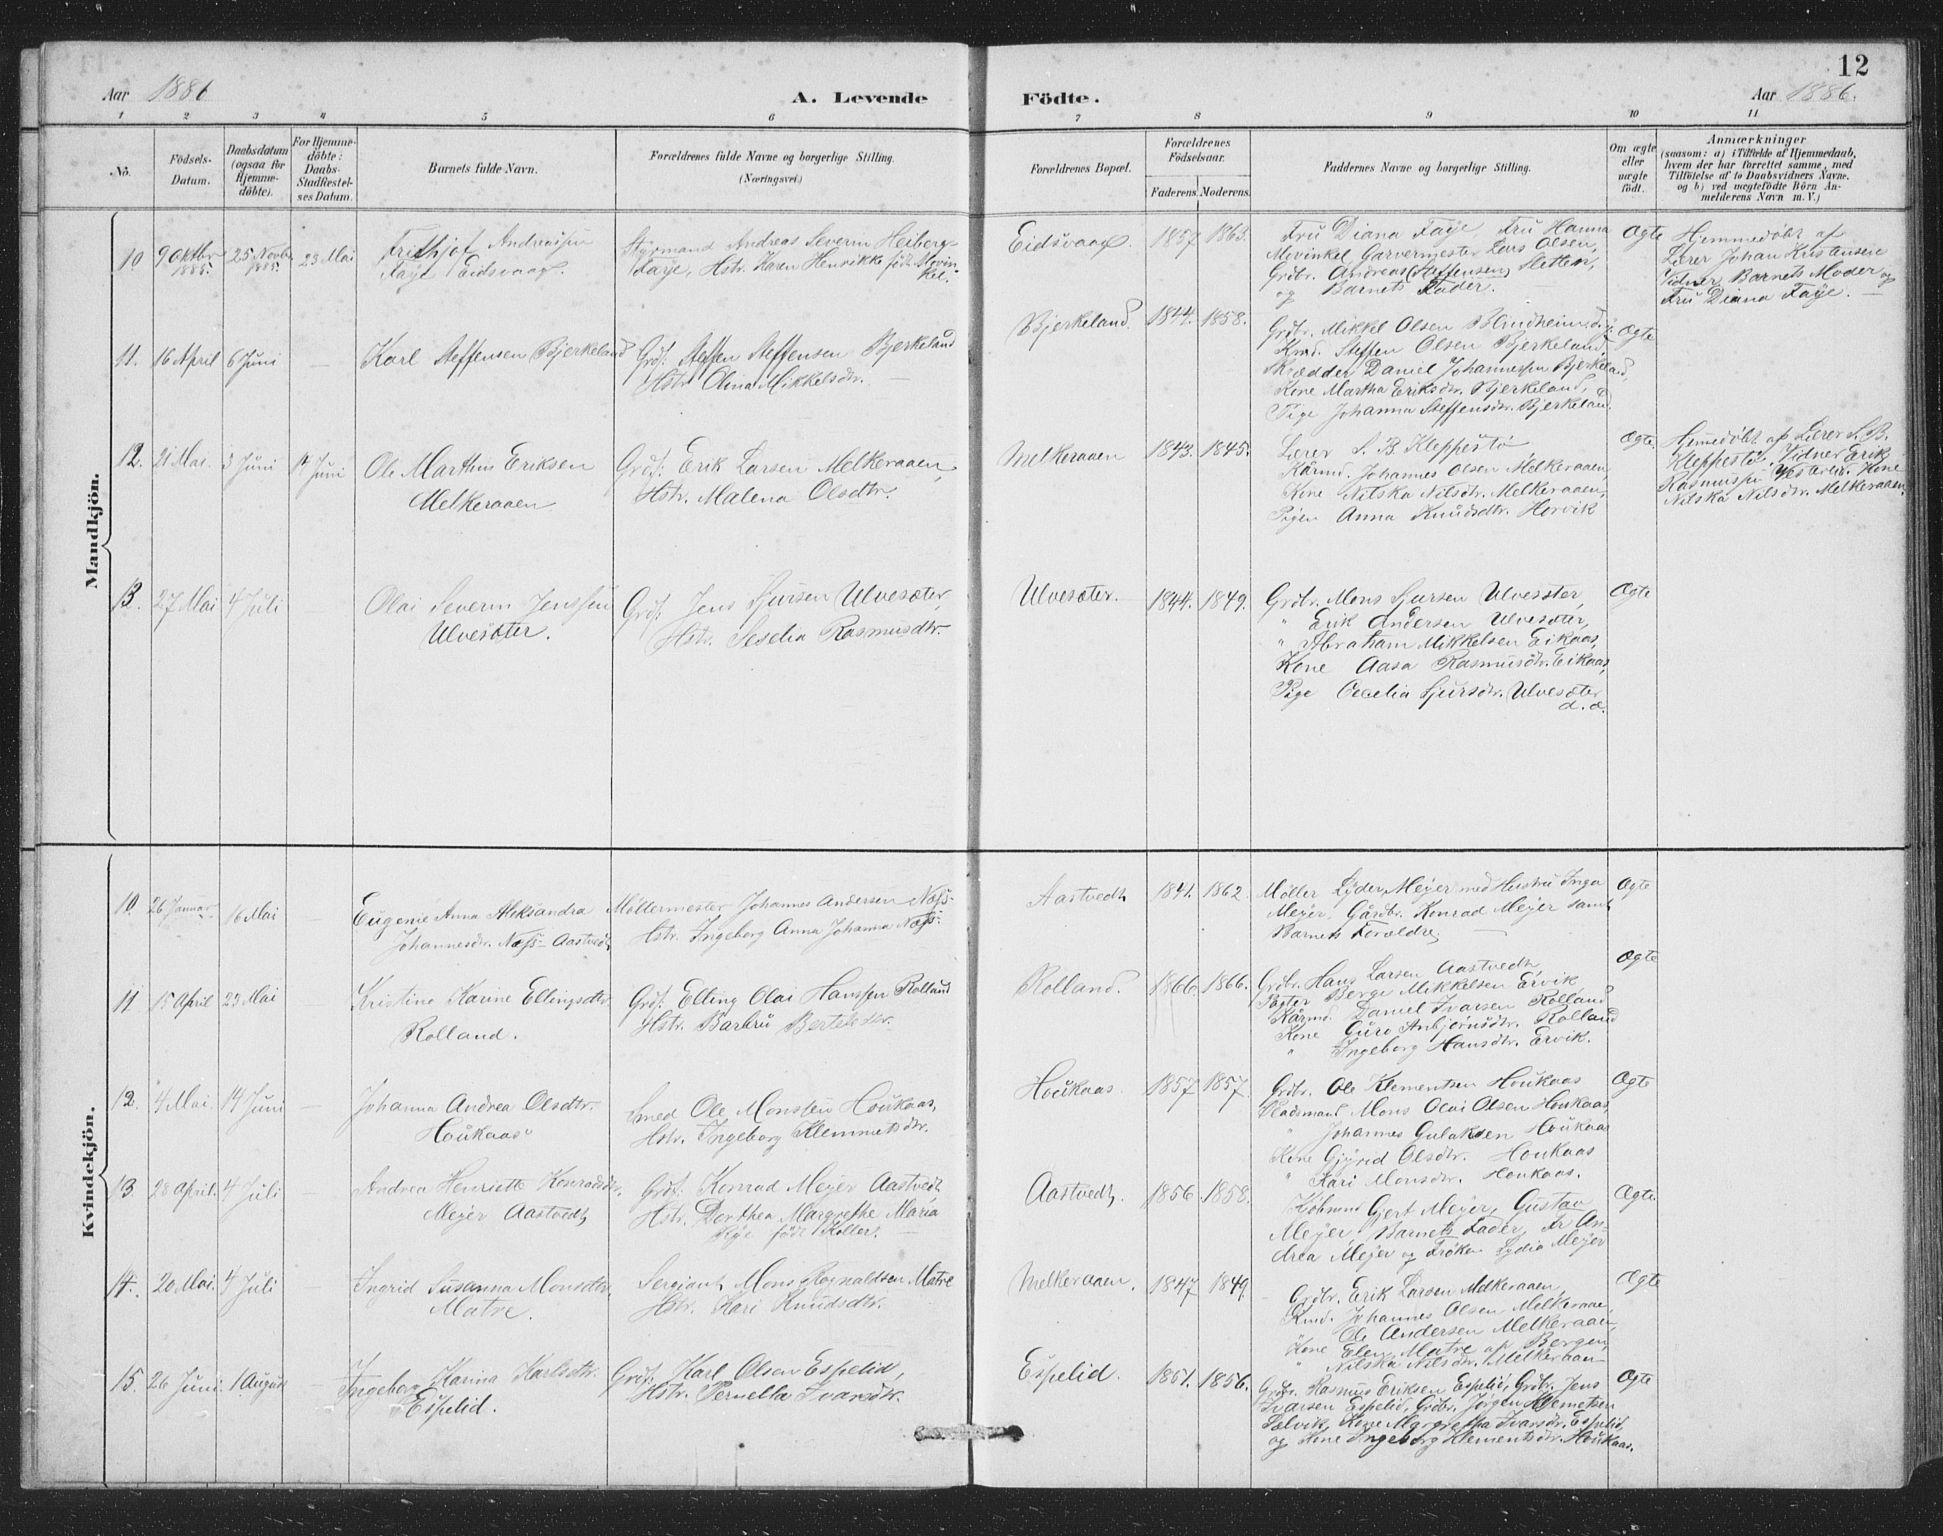 12
Aar 1886
A. Levende
Födte.
Aar 1886.
1 2 3 4 5 6 7 8 9 10 11
No.
Födsels-
Datum.
Daabsdatum
(ogsaa for
Hjemme-
döbte).
For Hjemme-
döbte:
Daabs-
Stadfæstel-
ses Datum.
Barnets fulde Navn.
Forældrenes fulde Navne og borgerlige Stilling.
(Næringsvei.)
Forældrenes Bopæl.
Forældrenes
Födselsaar.
Faderens Moderens.
Faddernes Navne og borgerlige Stilling.
Om ægte
eller
uægte
födt.
Anmærkninger
(saasom: a) i Tilfælde af Hjemmedaab,
hvem der har forrettet samme, med
Tilföielse af to Daabsvidners Navne.
og b) ved uægtefödte Börn An-
melderens Navn m. V.)
Mandkjön.
10 9 Oktbr 1885. 25 Novbr 1885. 23 Mai
Frithjof Andreassen
Faye Eidsvaag.
Styrmand Andreas Severin Heiberg
Faye, Hstr. Karen Henrikke föd Mowin-
kel.
Eidsvaag. 1857 1863.
Fru Diana Faye, Fru Hanna
Movinkel Garvermester Lars Olsen,
Grdbr. Andreas (Steffensen) Sletten,
og Barnets Fader.
Ægte
Hjemmedöbt af
Lærer Johan Kristensen
Vidner Barnets Moder og
Fru Diana Faye.
11. 16 April 6 Juni —
Karl Steffensen Bjerkeland
Grdf. Steffen Steffensen Bjerkeland
Hstr. Olina Mikkelsdtr.
Bjerkeland. 1844. 1858.
Grdbr. Mikkel Olsen Blindheimsd.
Krmd. Steffen Olsen Bjerkeland,
Skrædder Daniel Johannessen Bjerkeland,
Kone Martha Eriksdtr. Bjerkeland,
Pige Johanna Steffensdtr. Bjerkeland.
Ægte
12. 21 Mai. 3 Juni 14 Juni
Ole Marthin Eriksen
Melkeraaen
Grdf. Erik Larsen Melkeraaen,
Hstr. Malena Olsdtr.
Melkeraaen 1843. 1845.
Lærer S. B. Kleppestö
Kårmd. Johannes Olsen Melkeraaen,
Kone Nilska Nilsdtr. Melkeraaen,
Pigen Anna Knudsdtr. Hervik
Ægte.
Hjemmedöbt af Lærer S. B.
Kleppestö. Vidner Erik
Rasmussen Vesterli. Kone
Nilska Nilsdtr. Melkeraaen.
13. 27 Mai 4 Juli —
Olai Severin Jenssen
Ulvesæter.
Grdf. Jens Sjursen Ulvesæter,
Hstr. Seselia Rasmusdtr.
Ulvesæter. 1844. 1849.
Grdbr. Mons Sjursen Ulvesæter,
" Erik Andersen Ulvesæter,
" Abraham Mikkelsen Eikaas,
Kone Aasa Rasmusdtr. Eikaas,
Pige Cecelia Sjursdtr. Ulvesæter
d. æ.
Ægte
Kvindekjön.
10. 26 Januar 16 Mai —
Eugenie Anna Aleksandra
Johannesdtr. Næss Aastvedt
Möllermester Johannes Andersen Næss
Hstr. Ingeborg Anna Johanna Næss.
Aastvedt 1841. 1862.
Møller Lyder Meyer med Hustru Inga
Meyer, Gårdbr. Konrad Meyer samt
Barnets Forældre.
Ægte
11 15 April 23 Mai
Kristine Karine Ellingsdtr
Rolland.
Grdf. Elling Olai Hanssen Rolland
Hstr. Barbru Bertelsdtr.
Rolland. 1866. 1866.
Grdbr. Hans Larsen Aastvedt,
Pagter Berge Mikkelsen Ervik,
Kårmd. Daniel Ivarsen Rolland
Kone Guro Anbjørnsdtr. Rolland
" Ingeborg Hansdtr. Ervik.
Ægte
12. 4 Mai. 14 Juni —
Johanna Andrea Olsdtr.
Houkaas
Smed Ole Monssen Houkaas,
Hstr. Ingeborg Klemmetsdtr.
Houkaas. 1857 1857.
Grdbr. Ole Klementsen Houkaas
Pladsmand Mons Olai Olsen Houkaas,
" Johannes Gulaksen Houkaas
Kone Gjyrid Olsdtr. Houkaas
" Kari Monsdtr. Houkaas.
Ægte
13 28 April. 4 Juli —
Andrea Henriette Konradsdtr.
Meyer Aastvedt
Grdf. Konrad Meyer Aastvedt
Hstr. Dorthea Margrethe Maria
Rye född Koller.
Aastvedt. 1856. 1858.
Købmd Gjert Meyer, Gustav
Meyer, Barnets Fader, Fr An-
drea Meyer og Frøken Lydia Meyer
Ægte.
14. 20 Mai. 4 Juli —
Ingrid Susanna Monsdtr
Matre.
Sergiant Mons Rognaldsen Matre
Hstr. Kari Knudsdtr.
Melkeraaen. 1847 1849.
Grdbr. Erik Larsen Melkeraaen,
Krmd. Johannes Olsen Melkeraaen,
Ole Andersen Melkeraaen,
Kone Elen Matre af Bergen,
" Nilska Nilsdtr. Melkeraaen
Ægte
15. 26 Juni. 1 August —
Ingeborg Karina Karlsdtr
Espelid.
Grdf. Karl Olsen Espelid,
Hstr. Pernella Ivarsdtr.
Espelid. 1851. 1856.
Grdbr. Rasmus Eriksen Espelid, Grdbr. Jens
Ivarsen Espelid, Grdbr. Jørgen Klemetsen
Selvik, Kone Margretha Ivarsdtr. Espelid
og Kone Ingeborg Klementsdtr. Houkaas.
Ægte